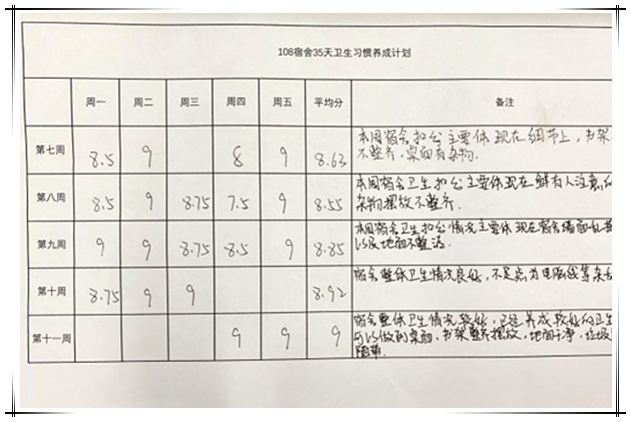 108宿舍35天卫生习惯养成计划
周一 周二 周三 周四 周五 平均分 备注
第七周 8.5 9 8 9 8.63 本周宿舍扣分主要体现在细节上，书架
不整齐，桌面有杂物.
第八周 8.5 9 8.75 7.5 9 8.55 本周宿舍卫生扣分主要体现在鲜有人注意
杂物摆放不整齐.
第九周 9 9 8.75 8.5 9 8.85 本周宿舍卫生扣分情况主要体现在宿舍墙面
以及地面不整洁.
第十周 8.75 9 9 8.92 宿舍整体卫生情况良好，不足点为电脑线等杂
第十一周 9 9 9 宿舍整体卫生情况较好，已经养成较好的卫生
可以做到桌面、书架整齐摆放，地面干净，垃圾